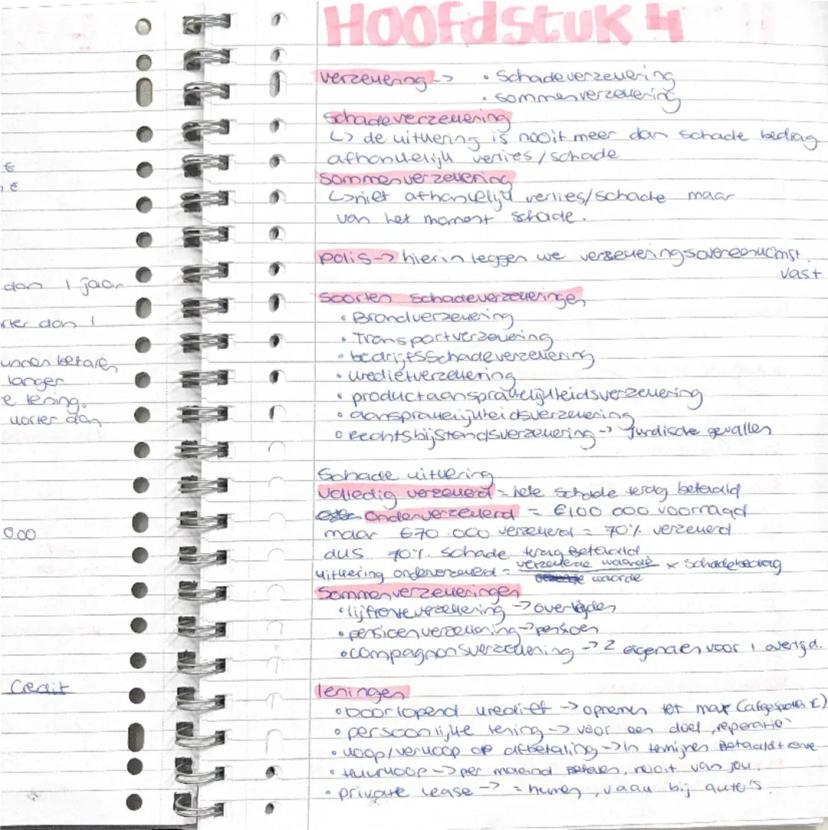 Hoofdstuk 4
verzekering -> • Schadeverzekering
• sommenverzekering
schadeverzekering
↳ de uitkering is nooit meer dan schade bedrag
afhankelijk verlies/schade
sommenverzekering
↳ niet afhankelijk verlies/schade maar
van het moment schade.
polis -> hierin leggen we verzekeringsovereenkomst
vast
soorten schadeverzekeringen
• Brandverzekering
• Transportverzekering
• bedrijfsSchadeverzekering
• kredietverzekering
• productaansprakelijkheidsverzekering
• aansprakelijkheidsverzekering
• rechtsbijstandsverzekering -> juridische gevallen
Schade uitkering
volledig verzekerd = hele schade terug betaald
onderverzekerd = €100 000 voorraad
maar €70 000 verzekerd = 70% verzekerd
dus 70% schade terug Betaald
uitkering onderverzekerd = verzekerde waarde / waarde × schadebedrag
Sommenverzekeringen
• lijfrenteverzekering -> overlijden
• pensioenverzekering -> pensioen
• compagnonsverzekering -> 2 eigenaren voor 1 overlijd.
leningen
• Doorlopend krediet -> opnemen tot max (afgesproken €)
• persoonlijke lening -> voor een doel, reperatie
• koop/verkoop op afbetaling -> in termijnen Betaald
• huurkoop -> per maand Betalen, nooit van jou.
• private lease -> = huren, vaak bij auto's.
€
€
dan 1 jaar
rter dan 1
unnen betalen
langer
e lening.
korter dan
000
Credit